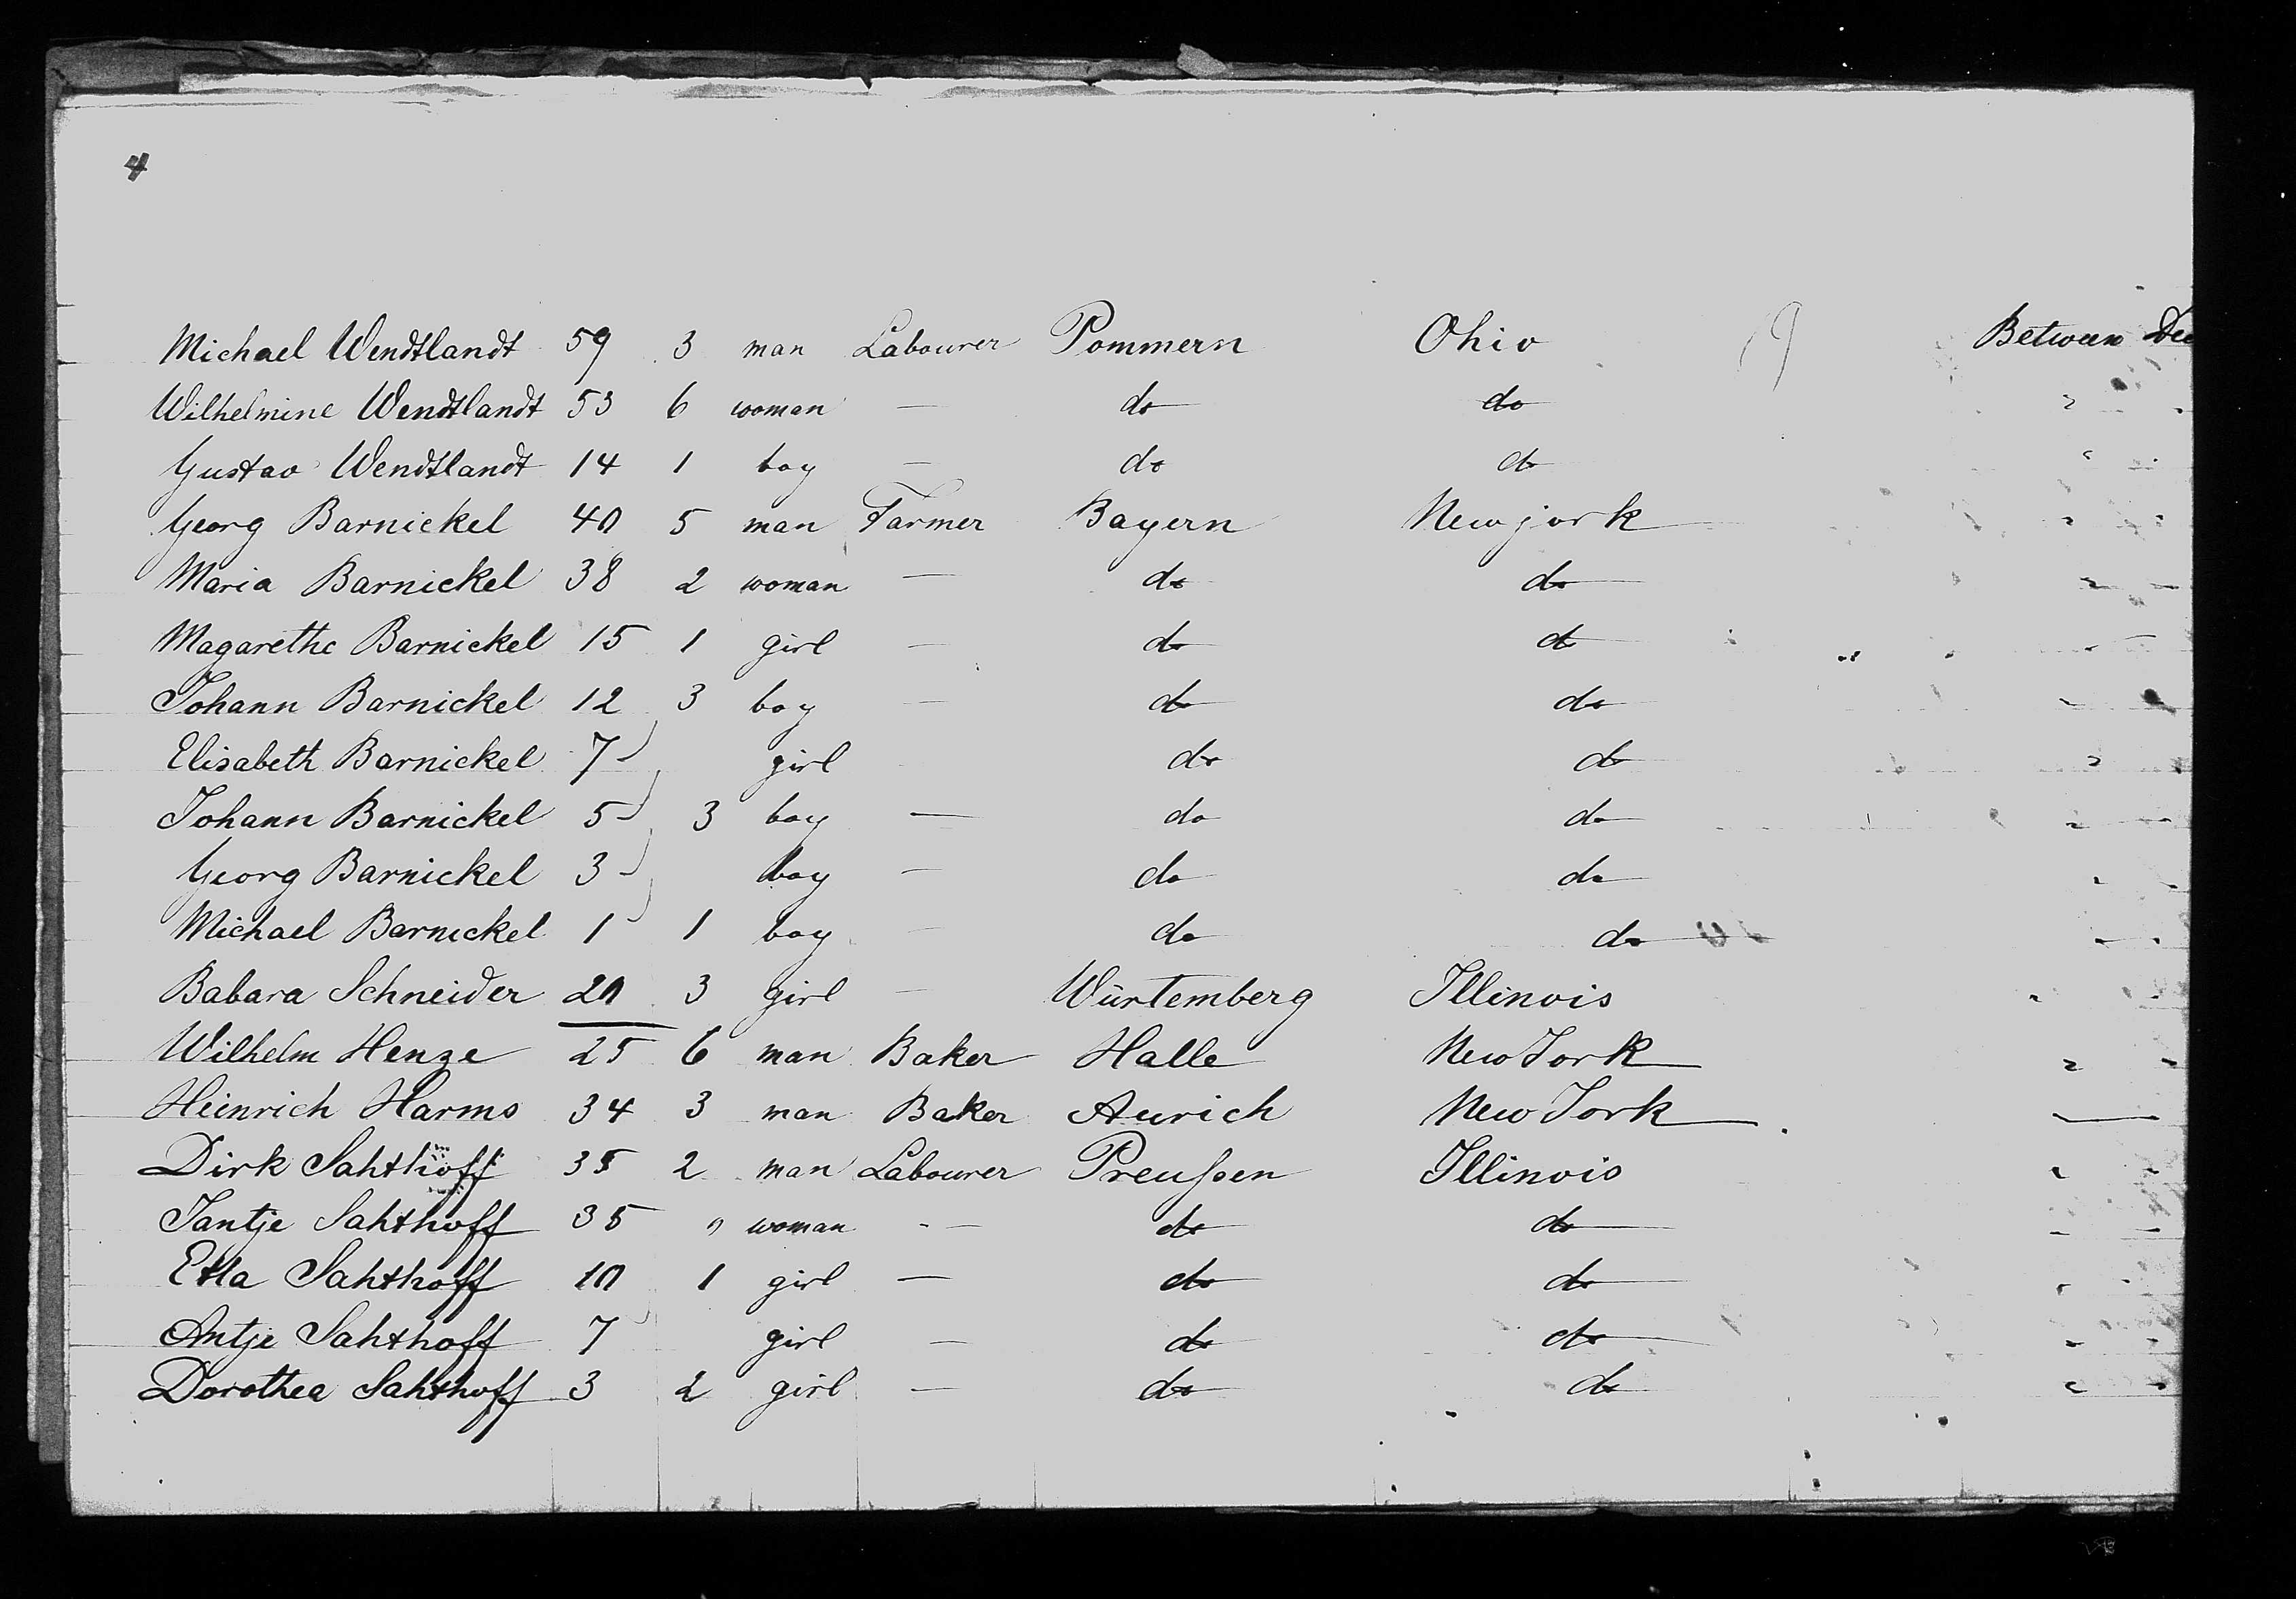 4
Michael Wendtlandt 59 3 man Labourer Pommern Ohio Between Dec
Wilhelmine Wendtlandt 53 6 woman — do do "
Gustav Wendtlandt 14 1 boy — do do "
Georg Barnickel 40 5 man Farmer Bayern Newjork "
Maria Barnickel 38 2 woman — do do "
Magarethe Barnickel 15 1 girl — do do "
Johann Barnickel 12 3 boy — do do "
Elisabeth Barnickel 7 girl do do "
Johann Barnickel 5 3 boy — do do "
Georg Barnickel 3 boy — do do "
Michael Barnickel 1 1 boy — do do "
Babara Schneider 20 3 girl — Würtemberg Illinois "
Wilhelm Henze 25 6 man Baker Halle New York "
Heinrich Harms 34 3 man Baker Aurich New York —
Dirk Sahthoff 35 2 man Labourer Preußen Illinois "
Jantje Sahthoff 35 " woman — do do "
Etta Sahthoff 10 1 girl — do do "
Antje Sahthoff 7 girl — do do "
Dorothea Sahthoff 3 2 girl — do do "